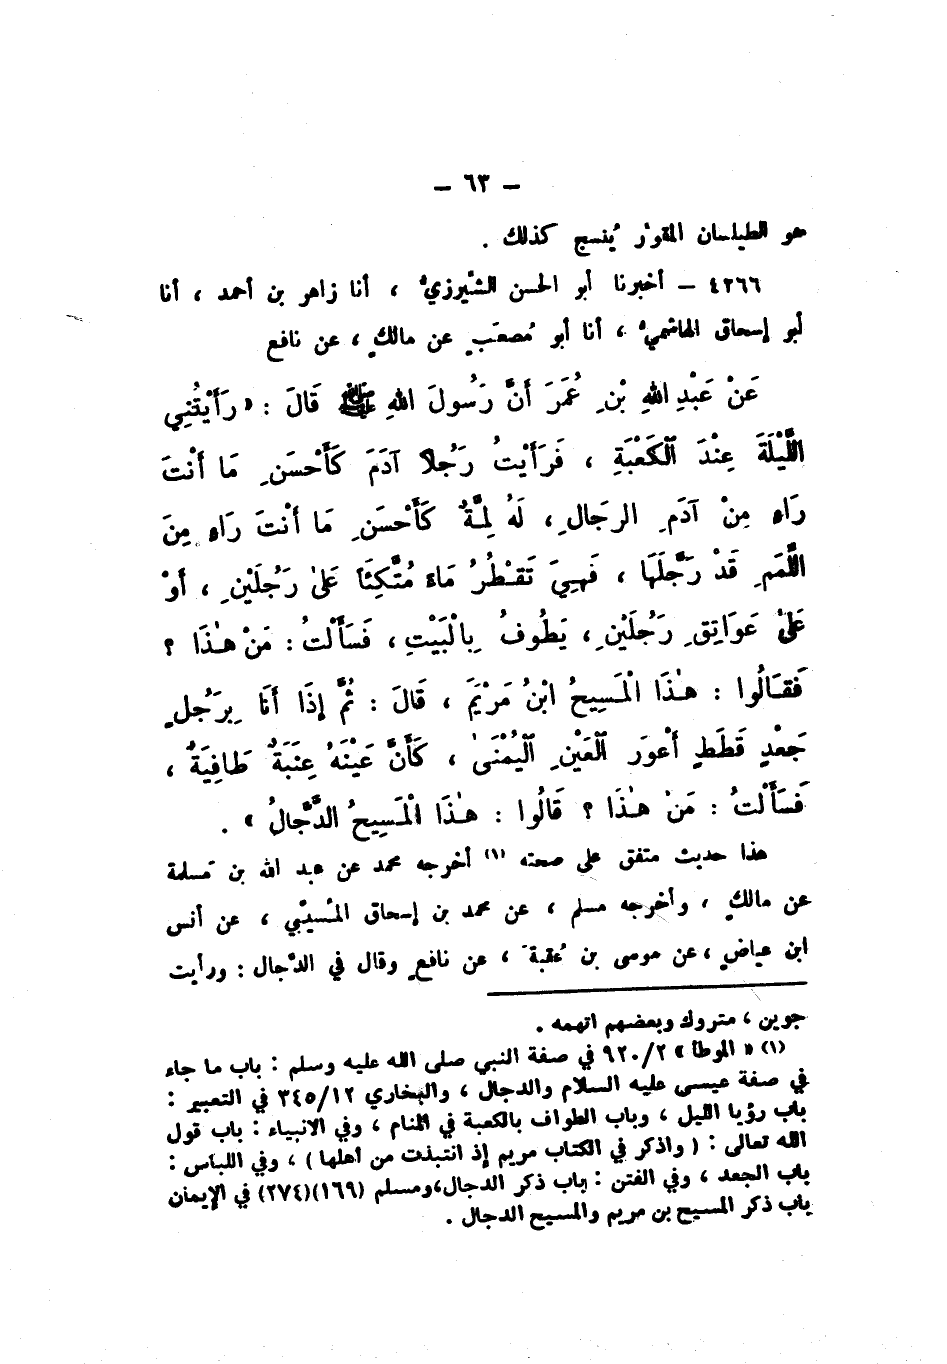 – ٦٣ –
هو الطيلسان المقوَّر يُنسج كذلك .
٤٢٦٦ – أخبرنا أبو الحسن الشِّيرزيُّ ، أنا زاهر بن أحمد ، أنا
أبو إسحاق الهاشميُّ ، أنا أبو مُصعَبٍ عن مالكٍ ، عن نافع
عَنْ عَبْدِ اللهِ بْنِ عُمَرَ أَنَّ رَسُولَ اللهِ ﷺ قَالَ : « رَأَيْتُنِي
اللَّيْلَةَ عِنْدَ الْكَعْبَةِ ، فَرَأَيْتُ رَجُلاً آدَمَ كَأَحْسَنِ مَا أَنْتَ
رَاءٍ مِنْ آدَمِ الرجَالِ ، لَهُ لِمَّةٌ كَأَحْسَنِ مَا أَنْتَ رَاءٍ مِنَ
اللَّمَمِ قَدْ رَجَّلَهَا ، فَهِيَ تَقْطُرُ مَاءً مُتَّكِئَاً عَلىٰ رَجُلَيْنِ ، أَوْ
عَلىٰ عَوَاتِقِ رَجُلَيْنِ ، يَطُوفُ بِالْبَيْتِ ، فَسَأَلْتُ : مَنْ هٰذَا ؟
فَقَالُوا : هٰذَا الْمَسِيحُ ابْنُ مَرْيَمَ ، قَالَ : ثُمَّ إِذَا أَنَا بِرَجُلٍ
جَعْدٍ قَطَطٍ أَعْوَرِ الْعَيْنِ الْيُمْنَىٰ ، كَأَنَّ عَيْنَهُ عِنَبَةٌ طَافِيَةٌ ،
فَسَأَلْتُ : مَنْ هٰذَا ؟ قَالُوا : هٰذَا الْمَسِيحُ الدَّجَّالُ » .
هذا حديث متفق على صحته (١) أخرجه محمد عن عبد الله بن مَسلمة
عن مالكٍ ، وأخرجه مسلم ، عن محمد بن إسحاق المُسيِّبي ، عن أنس
ابن عياضٍ ، عن موسى بن عُقبةَ ، عن نافعٍ وقال في الدَّجال : ورأيت
جوين ، متروك وبعضهم اتهمه .
(١) « الموطأ » ٩٢٠/٢ في صفة النبي صلى الله عليه وسلم : باب ما جاء
في صفة عيسى عليه السلام والدجال ، والبخاري ٣٤٥/١٢ في التعبير :
باب رؤيا الليل ، وباب الطواف بالكعبة في المنام ، وفي الانبياء : باب قول
الله تعالى : ( واذكر في الكتاب مريم إذ انتبذت من أهلها ) ، وفي اللباس :
باب الجعد ، وفي الفتن : باب ذكر الدجال،ومسلم (١٦٩)(٢٧٤) في الإيمان
باب ذكر المسيح بن مريم والمسيح الدجال .